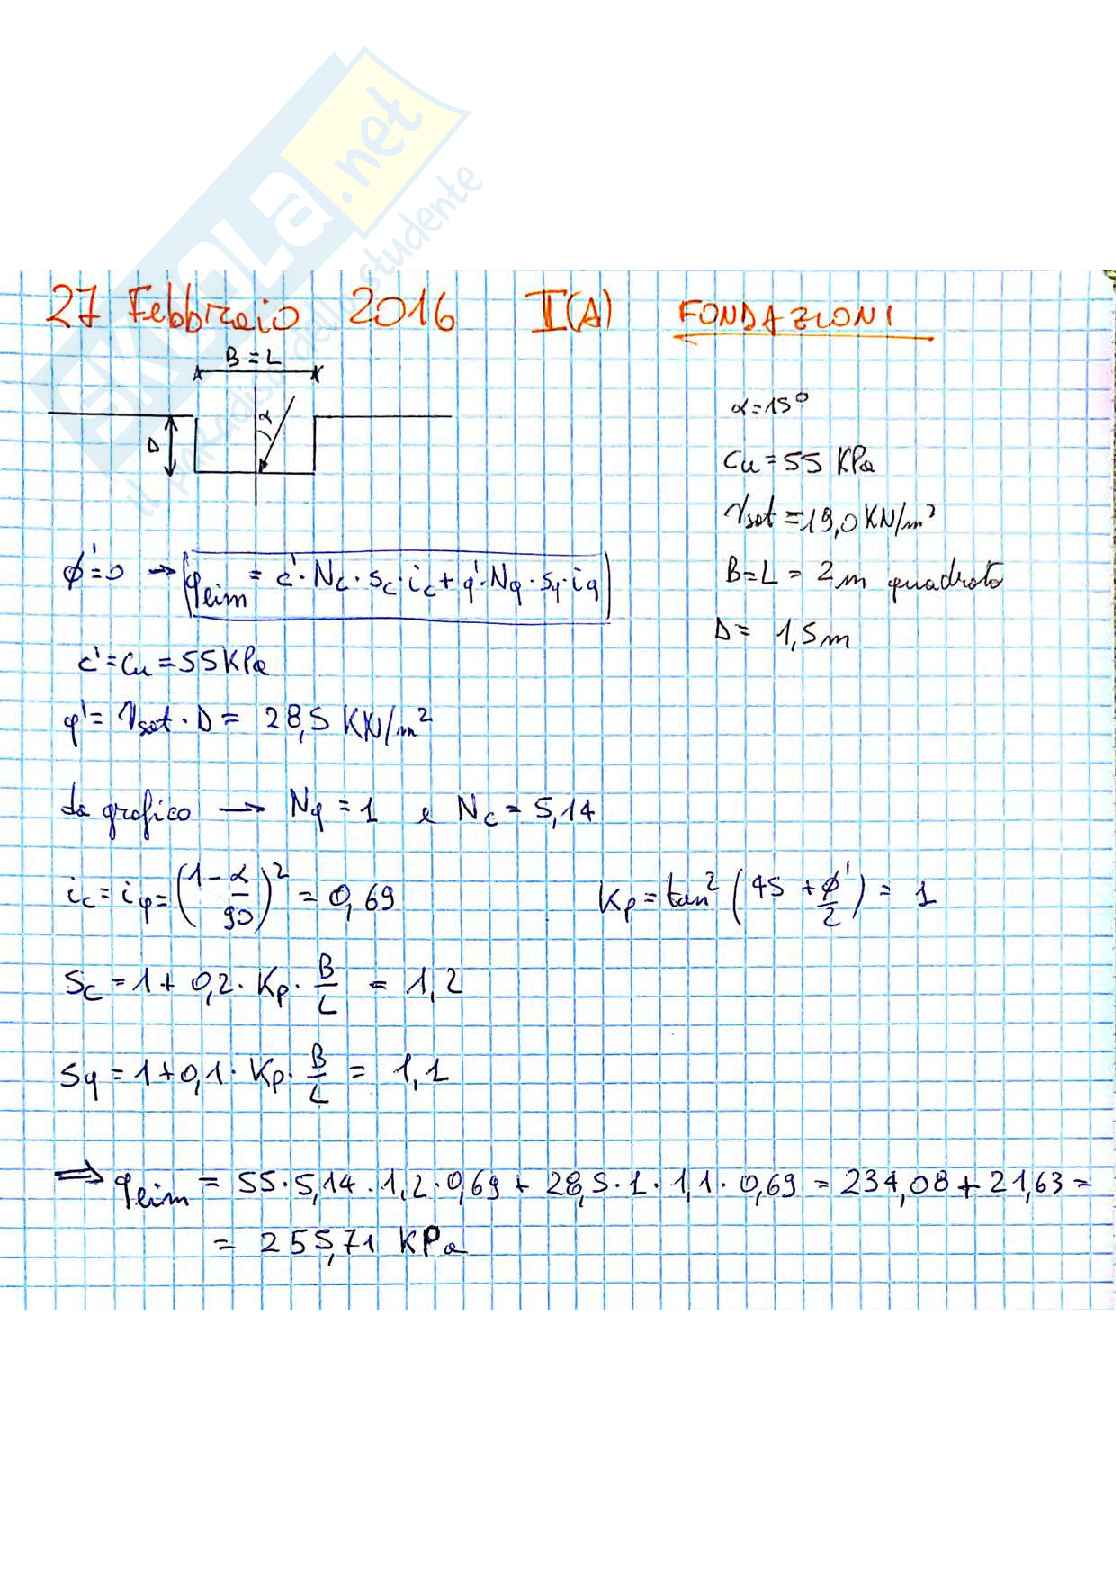 SKUOLA.net
il paradiso dello studente
27 Febbraio 2016 I(A) FONDAZIONI
B = L
α
D
α=15°
Cu = 55 KPa
γsat = 19,0 KN/m³
B=L = 2m quadrato
D = 1,5m
ϕ'=0 → qlim = c'·Nc·sc·ic + q'·Nq·sq·iq
c' = Cu = 55 KPa
q' = γsat · D = 28,5 KN/m²
da grafico → Nq = 1 e Nc = 5,14
ic = iq = (1 - α/90)² = 0,69 Kp = tan² (45 + ϕ'/2) = 1
Sc = 1 + 0,2 · Kp · B/L = 1,2
Sq = 1 + 0,1 · Kp · B/L = 1,1
⇒ qlim = 55·5,14·1,2·0,69 + 28,5·1·1,1·0,69 = 234,08 + 21,63 =
= 255,71 KPa